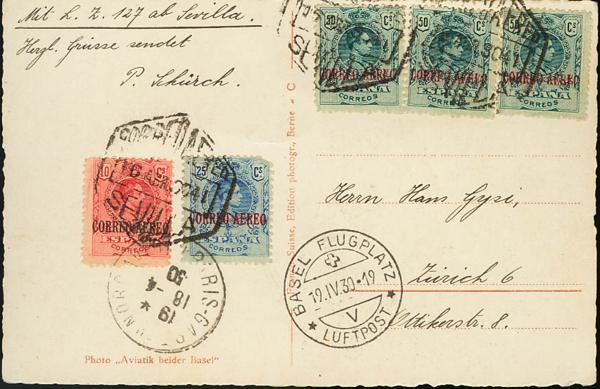 Mit L. Z. 127 ab Sevilla.
Herzl. Grüsse sendet
P. Schürch.
50 Cs 50 Cs 50 Cs
CORREO AEREO CORREO AEREO CORREO AEREO
ESPAÑA ESPAÑA ESPAÑA
CORREOS CORREOS CORREOS
SEVILLA
10 Cs 25 Cs
CORREO AEREO
SEVILLA
CORREO AEREO CORREO AEREO
ESPAÑA ESPAÑA
CORREOS CORREOS
PARIS-GARE
19
18 -4
30
Suisse, Edition photogr., Berne
Herrn Hans Gysi,
Zürich 6
Ottikerstr. 8.
BASEL FLUGPLATZ
19.IV.30-19
V
* LUFTPOST *
Photo „Aviatik beider Basel"